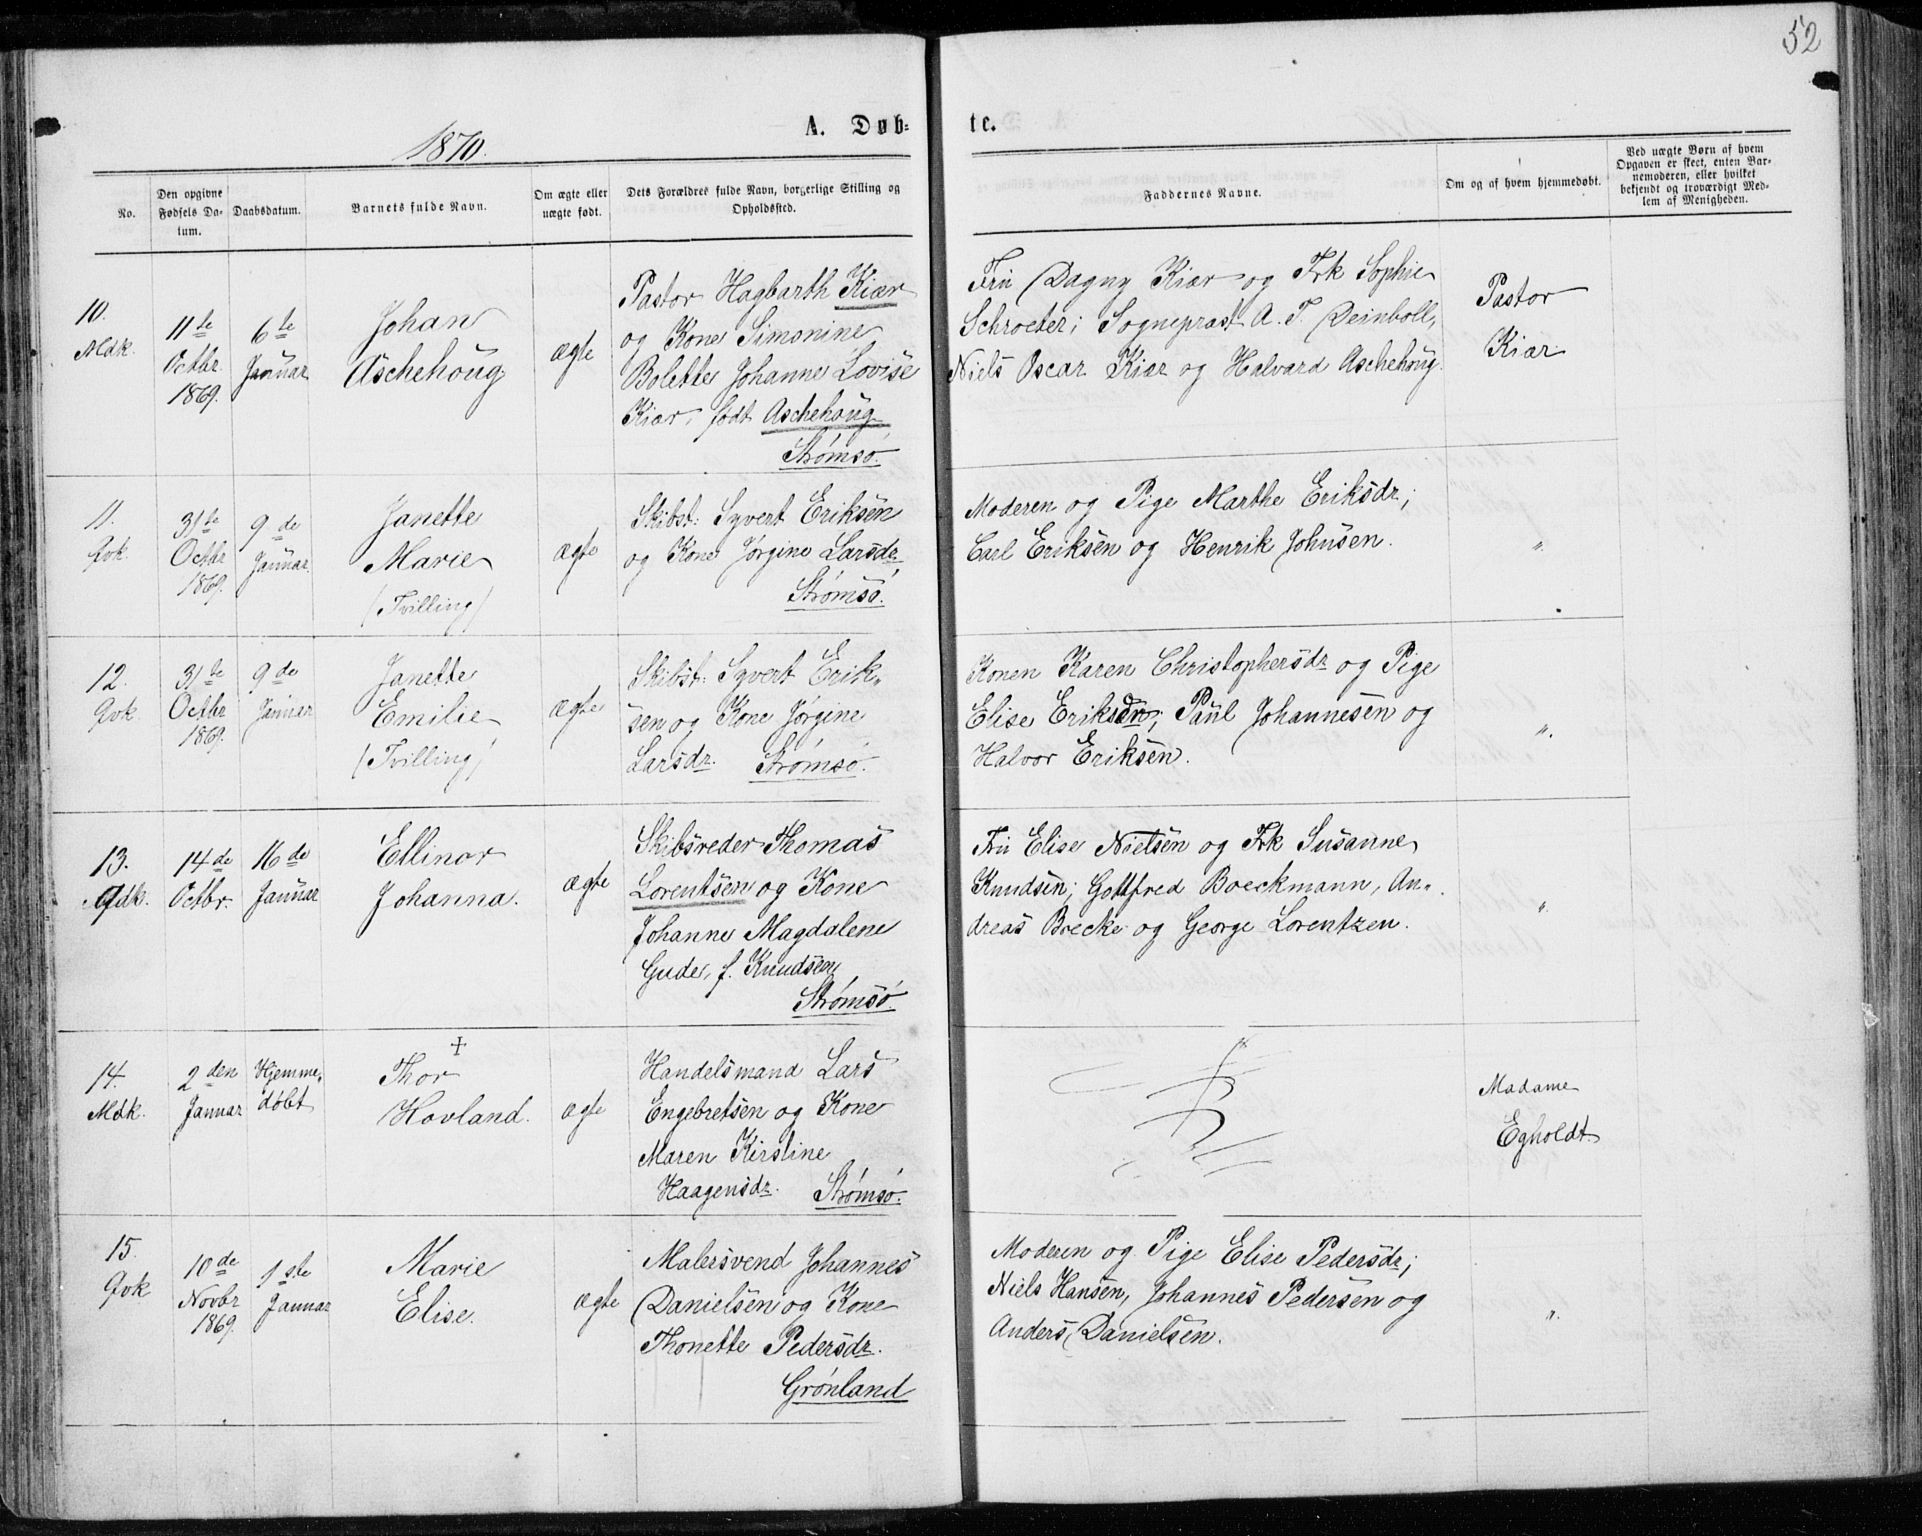 52
1870.
A. Døb-
te.
No.
Den opgivne
Fødsels Da-
tum.
Daabsdatum.
Barnets fulde Navn.
Om ægte eller
uægte født.
Dets Forældres fulde Navn, borgerlige Stilling og
Opholdssted.
Faddernes Navne.
Om og af hvem hjemmedøbt.
Ved uægte Børn af hvem
Opgaven er skeet, enten Bar-
nemoderen, eller hvilket
bekjendt og troværdigt Med-
lem af Menigheden.
10.
Mdk.
11te
Octbr.
1869.
6te
Januar
Johan
Aschehoug
ægte
Pastor Hagbarth Kiær
og Kone Simonine
Bolette Johanne Lovise
Kiær, født Aschehoug
Strømsø.
Fru Dagny Kiær og Frk Sophie
Schroeter; Sognepræst A. T. Deinboll,
Niels Oscar Kiær og Halvard Aschehoug.
Pastor
Kiær.
11.
Qvk
31te
Octbr
1869.
9de
Januar.
Janette
Marie
(Tvilling)
ægte
Skibst: Syvert Eriksen
og Kone Jørgine Larsdr.
Strømsø.
Moderen og Pige Marthe Eriksdr;
Carl Eriksen og Henrik Johnsen.
"
12.
Qvk
31te
Octbr
1869.
9de
Januar
Janette
Emilie
(Tvilling)
ægte
Skibst: Syvert Erik„
sen og Kone Jørgine
Larsdr. Strømsø.
Konen Karen Christophersdr og Pige
Elise Eriksen; Paul Johannesen og
Halvor Eriksen.
".
13.
Qdk.
14de
Octbr.
16de
Januar
Ellinor
Johanna.
ægte
Skibsreder Thomas
Lorentsen og Kone
Johanne Magdalene
Gude, f. Knudsen
Strømsø.
Fru Elise Nielsen og Frk Susanne
Knudsen; Gottfred Boeckmann, An„
dreas Brecke og George Lorentzen.
"
14.
Mdk.
2den
Januar
Hjemme„
døbt
+
Thor
Hovland.
ægte
Handelsmand Lars
Engebretsen og Kone
Maren Kirstine
Haagensdr. Strømsø.
Madame
Egholdt.
15.
Qvk
10de
Novbr
1869.
1ste
Januar
Marie
Elise.
ægte
Malersvend Johannes
Danielsen og Kone
Thonette Pedersdr.
Grønland
Moderen og Pige Elise Pedersdr;
Niels Hansen, Johannes Pedersen og
Anders Danielsen.
".